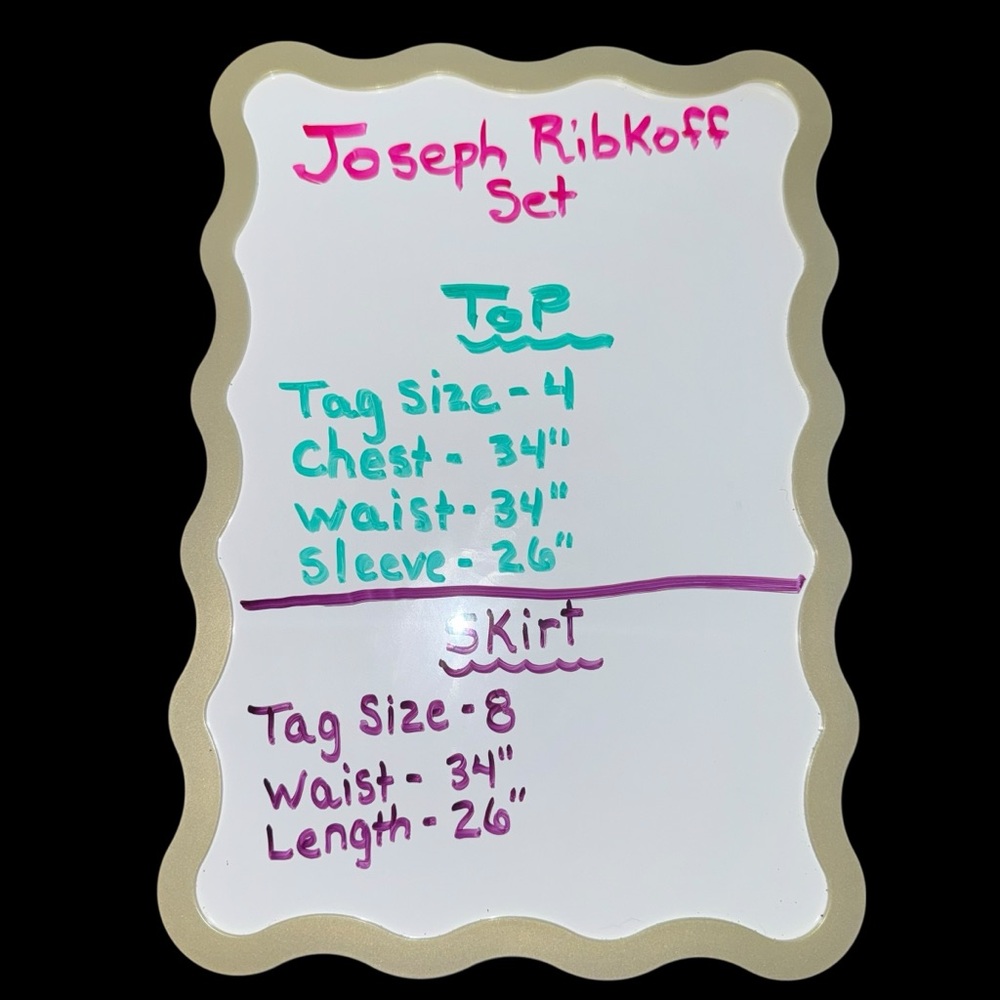 Joseph Ribkoff
Set
ToP
Tag Size - 4
Chest - 34"
Waist - 34"
Sleeve - 26"
SKirt
Tag Size - 8
Waist - 34"
Length - 26"